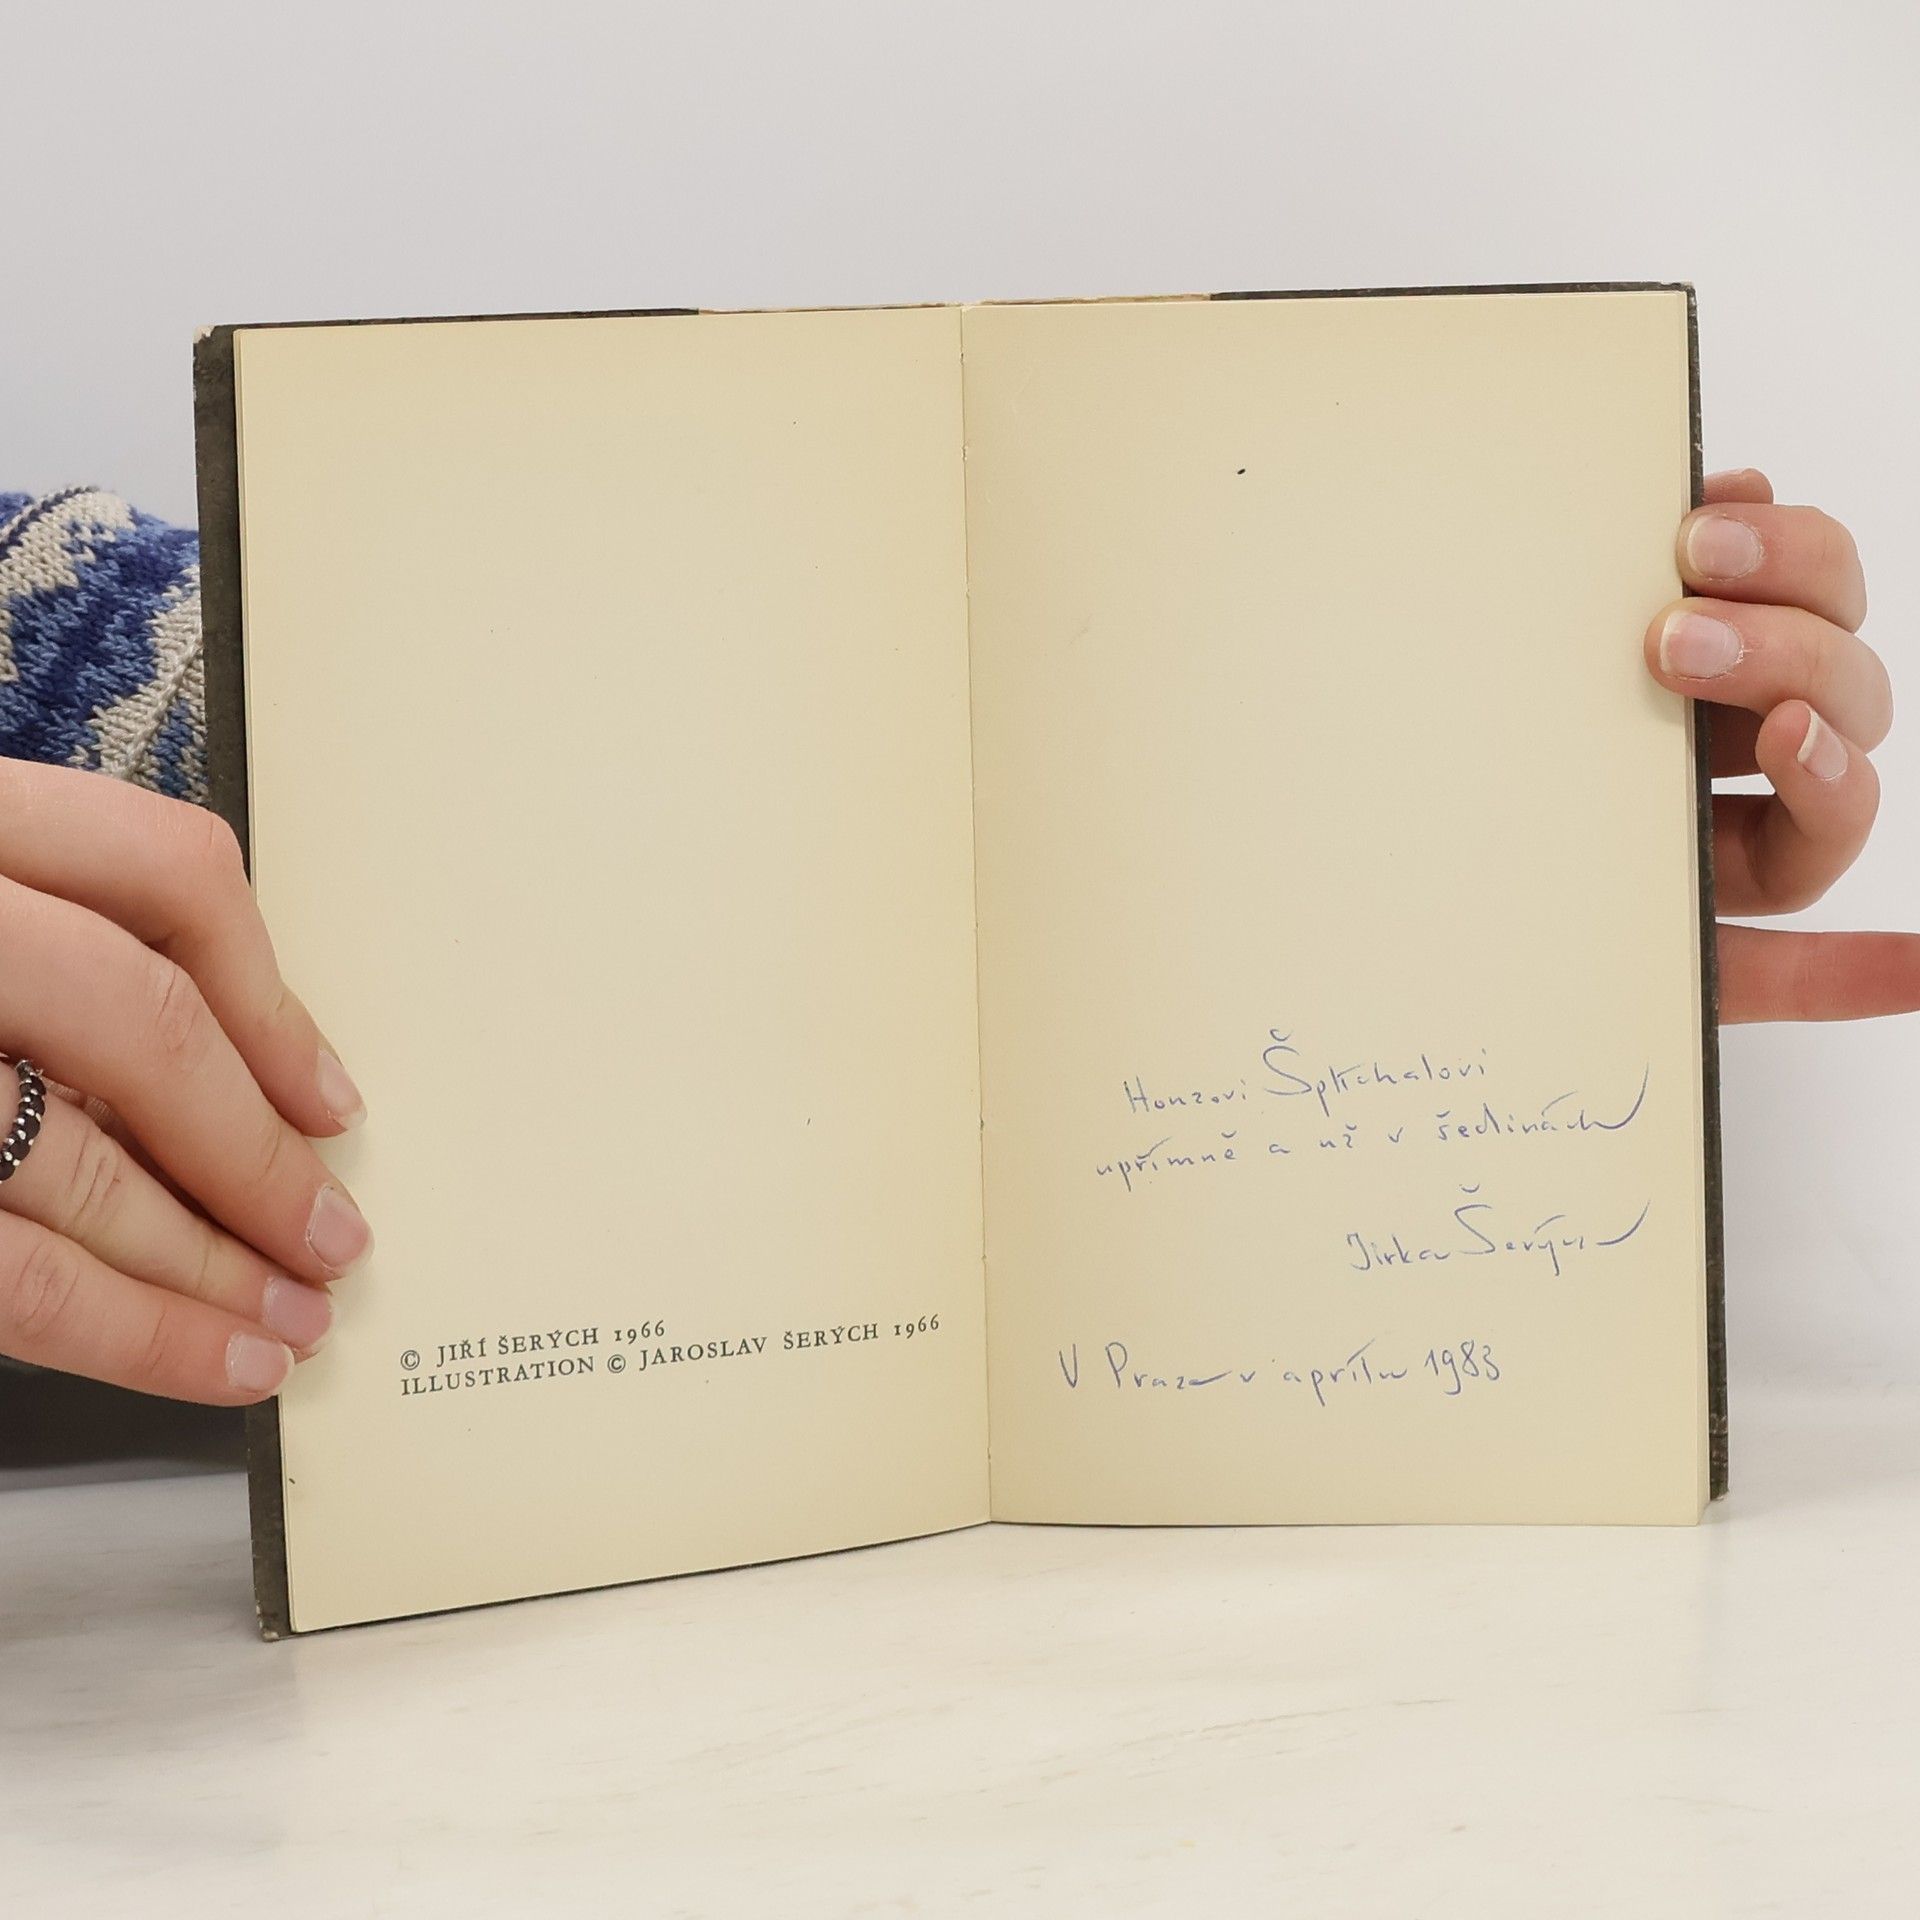 © JIŘÍ ŠERÝCH 1966
ILLUSTRATION © JAROSLAV ŠERÝCH 1966
Honzovi Šplíchalovi
upřímně a už v šedinách
Jirka Šerých
V Praze v aprílu 1983